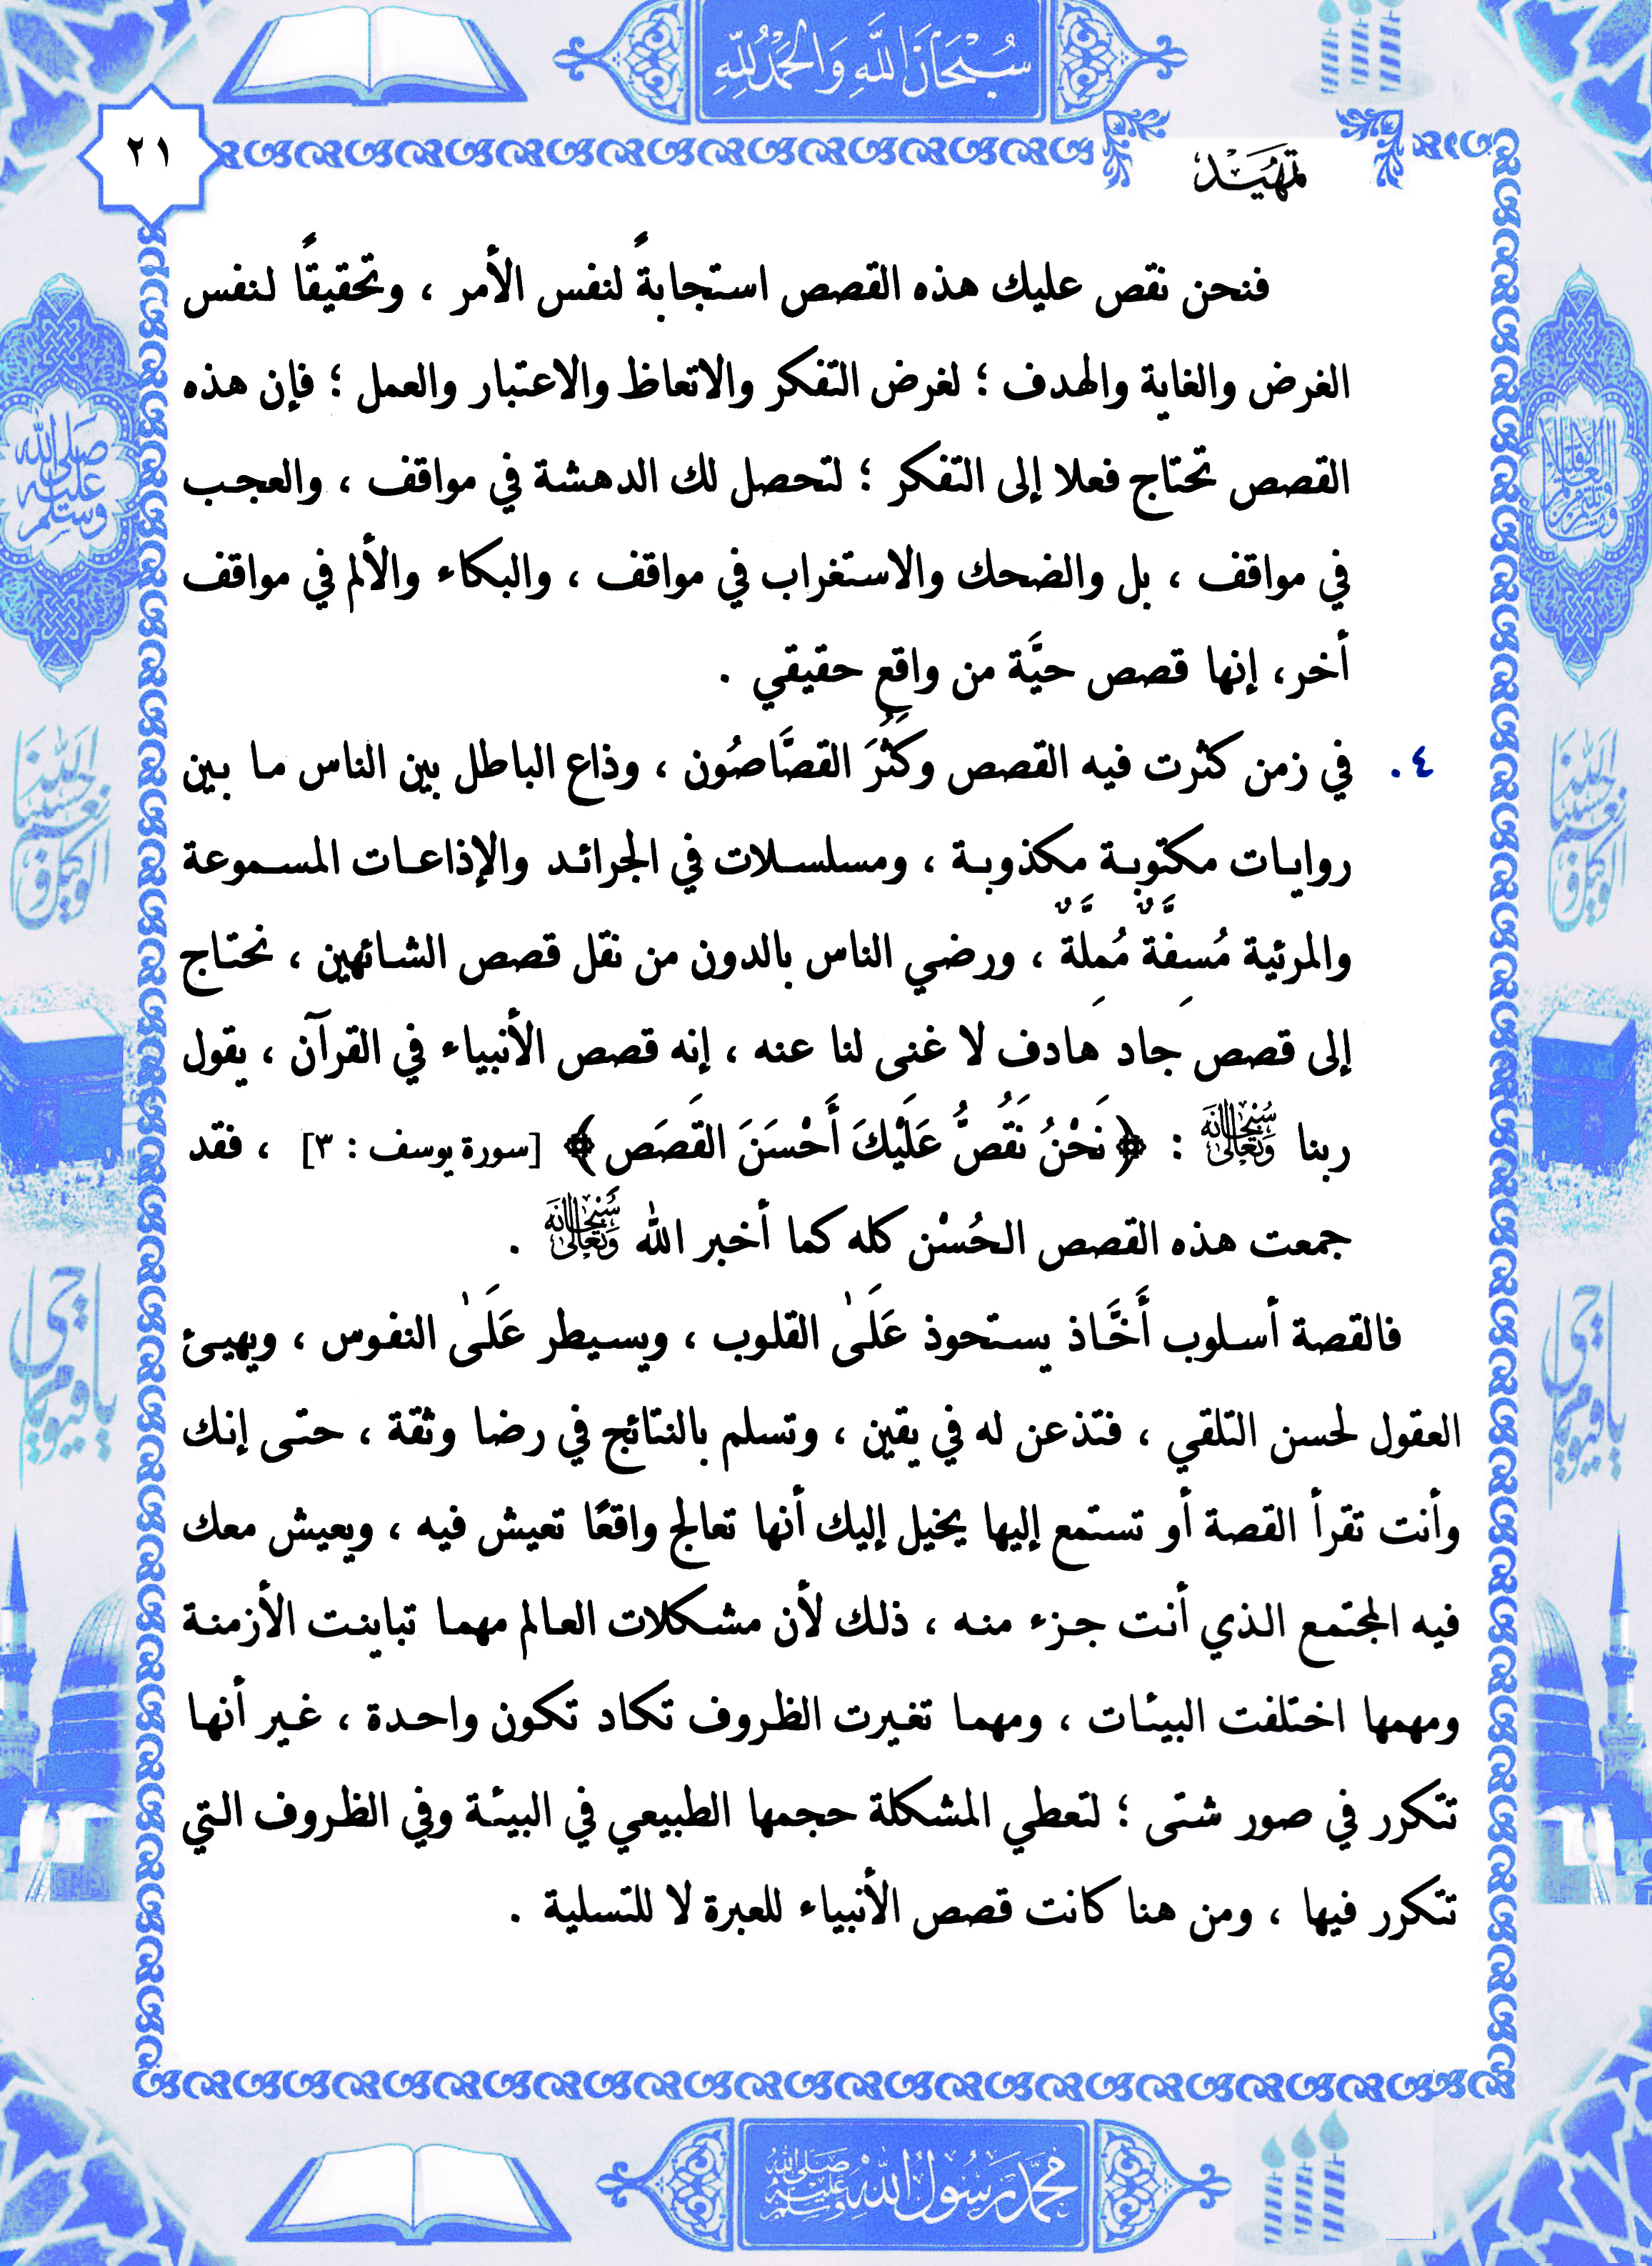 سُبْحَانَ اللَّهِ وَالْحَمْدُ لِلَّهِ
٢١
تمهيد
فنحن نقص عليك هذه القصص استجابةً لنفس الأمر ، وتحقيقًا لنفس
الغرض والغاية والهدف ؛ لغرض التفكر والاتعاظ والاعتبار والعمل ؛ فإن هذه
القصص تحتاج فعلا إلى التفكر ؛ لتحصل لك الدهشة في مواقف ، والعجب
في مواقف ، بل والضحك والاستغراب في مواقف ، والبكاء والألم في مواقف
أخر، إنها قصص حيَّة من واقع حقيقي .
٤. في زمن كثرت فيه القصص وكَثُرَ القصَّاصُون ، وذاع الباطل بين الناس ما بين
روايات مكتوبة مكذوبة ، ومسلسلات في الجرائد والإذاعات المسموعة
والمرئية مُسِفَّةٌ مُمِلَّةٌ ، ورضي الناس بالدون من نقل قصص الشائهين ، نحتاج
إلى قصص جاد هادف لا غنى لنا عنه ، إنه قصص الأنبياء في القرآن ، يقول
ربنا سُبْحَانَهُ وَتَعَالَى : ﴿ نَحْنُ نَقُصُّ عَلَيْكَ أَحْسَنَ القَصَصِ ﴾ [سورة يوسف : ٣] ، فقد
جمعت هذه القصص الحُسْن كله كما أخبر الله سُبْحَانَهُ وَتَعَالَى .
فالقصة أسلوب أَخَّاذ يستحوذ عَلَىٰ القلوب ، ويسيطر عَلَىٰ النفوس ، ويهيئ
العقول لحسن التلقي ، فتذعن له في يقين ، وتسلم بالنتائج في رضا وثقة ، حتى إنك
وأنت تقرأ القصة أو تستمع إليها يخيل إليك أنها تعالج واقعًا تعيش فيه ، ويعيش معك
فيه المجتمع الذي أنت جزء منه ، ذلك لأن مشكلات العالم مهما تباينت الأزمنة
ومهمها اختلفت البيئات ، ومهما تغيرت الظروف تكاد تكون واحدة ، غير أنها
تتكرر في صور شتى ؛ لتعطي المشكلة حجمها الطبيعي في البيئة وفي الظروف التي
تتكرر فيها ، ومن هنا كانت قصص الأنبياء للعبرة لا للتسلية .
صلى الله عليه وسلم
حسبنا الله ونعم الوكيل
حسبنا الله ونعم الوكيل
يا حي يا قيوم
يا حي يا قيوم
محمد رسول الله صلى الله عليه وسلم